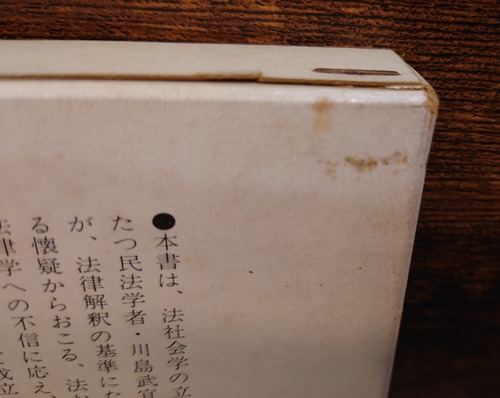 ●本書は、法社会学の立
たつ民法学者・川島武宜
が、法律解釈の基準にな
る懐疑からおこる、法
律学への不信に応え、
成立